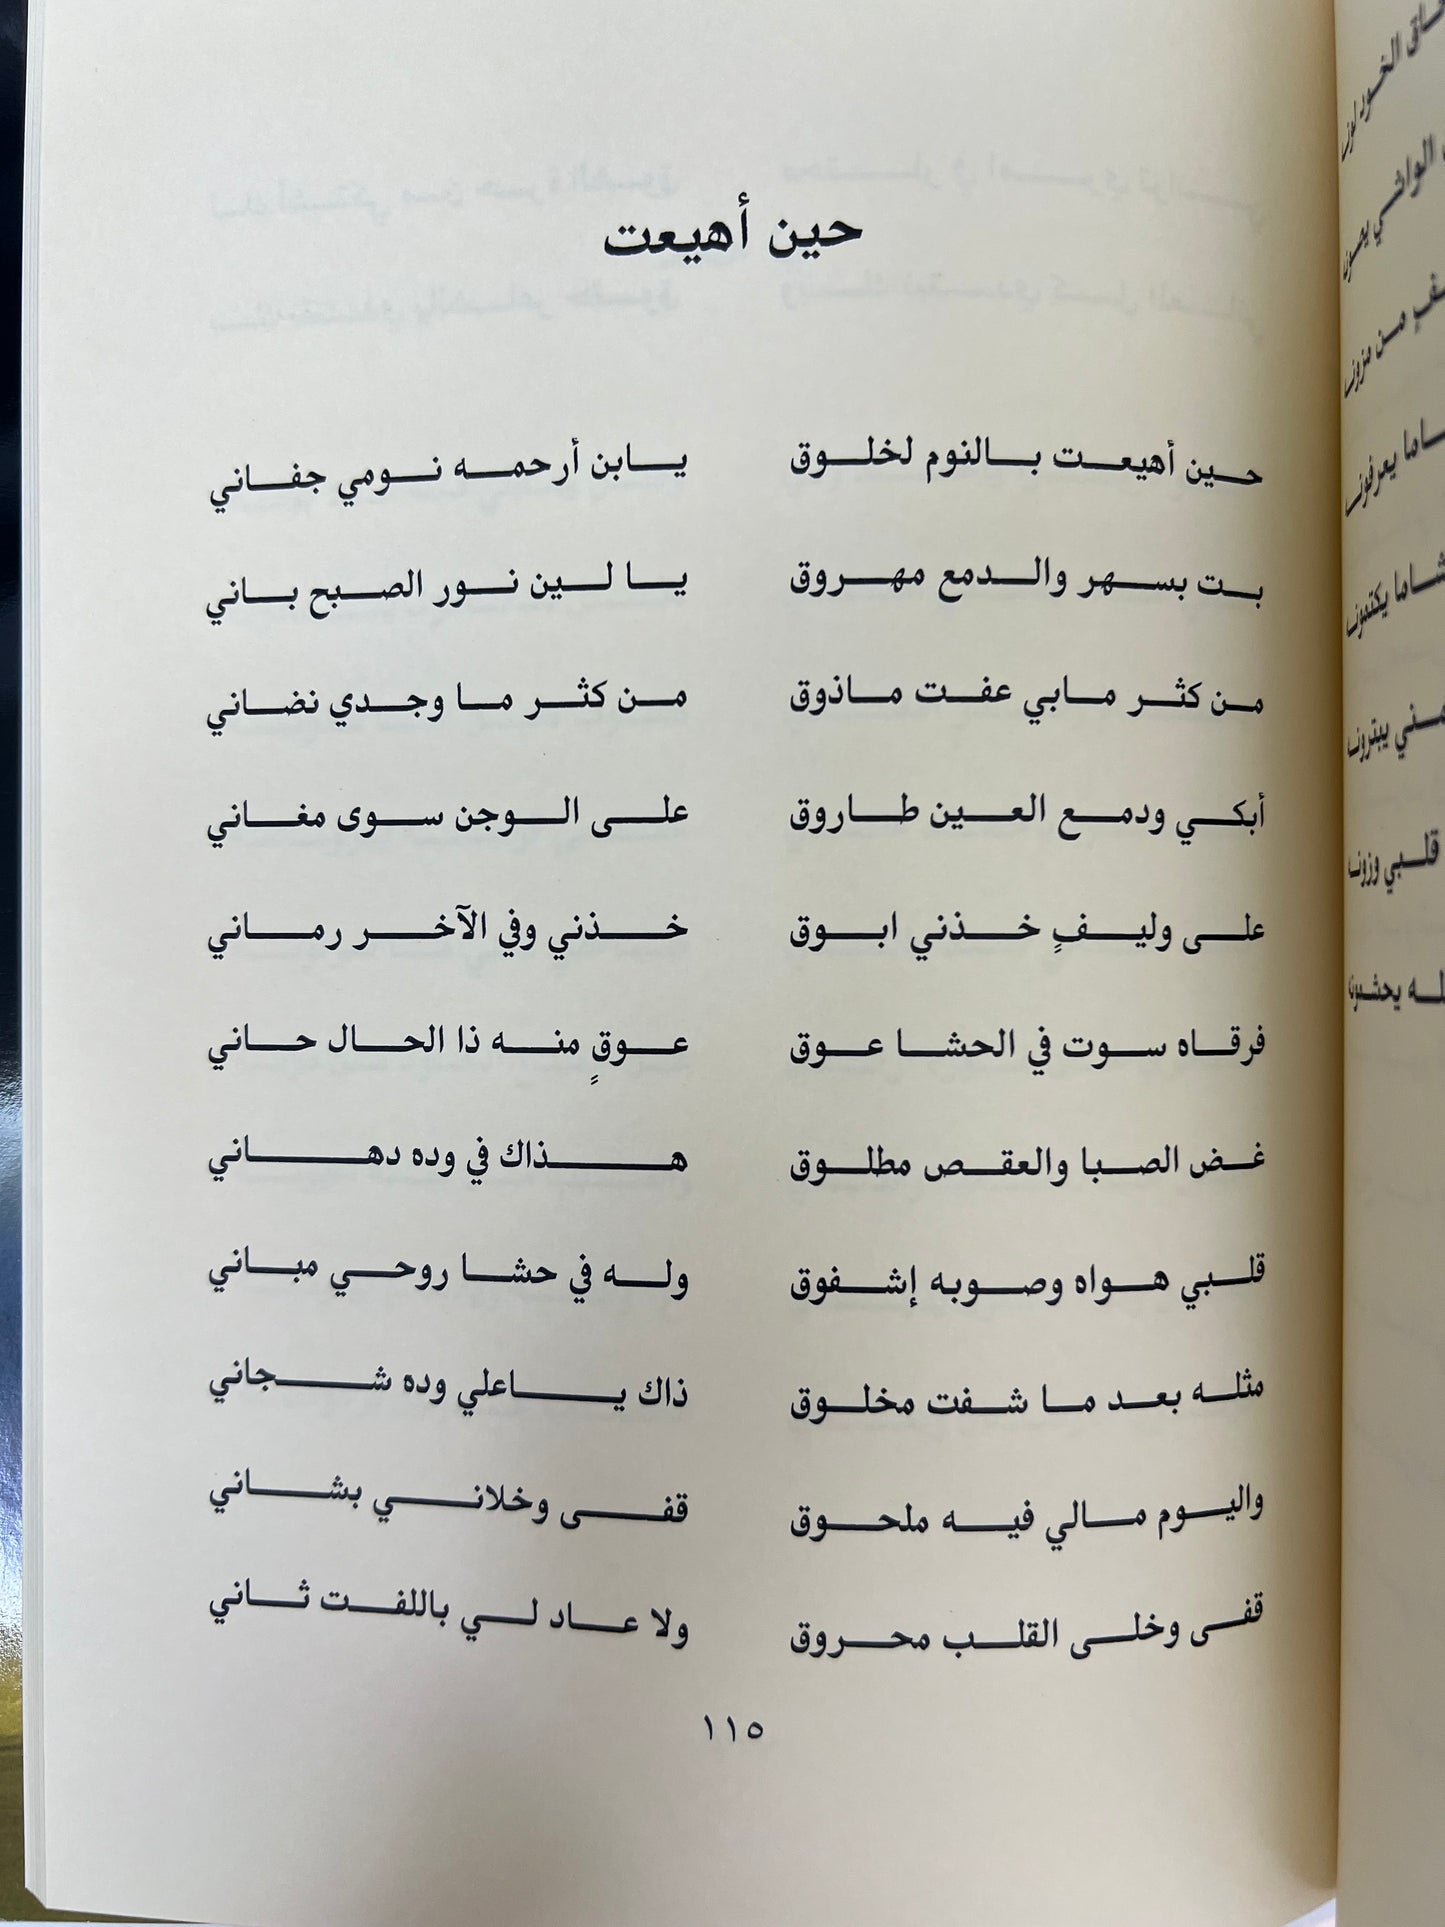 حين أهيعت
حين أهيعت بالنوم لخلوق يابن أرحمه نومي جفاني
بت بسهر والدمع مهروق يا لين نور الصبح باني
من كثر مابي عفت ماذوق من كثر ما وجدي نضاني
أبكي ودمع العين طاروق على الوجن سوى مغاني
على وليفٍ خذني ابوق خذني وفي الآخر رماني
فرقاه سوت في الحشا عوق عوقٍ منه ذا الحال حاني
غض الصبا والعقص مطلوق هذاك في وده دهاني
قلبي هواه وصوبه إشفوق وله في حشا روحي مباني
مثله بعد ما شفت مخلوق ذاك ياعلي وده شجاني
واليوم مالي فيه ملحوق قفى وخلاني بشاني
قفى وخلى القلب محروق ولا عاد لي باللفت ثاني
١١٥
الخود لونه
الواشي
من مزونه
يعرفونه
يكتمونه
يبترونه
قلبي وزونه
يحشمونه